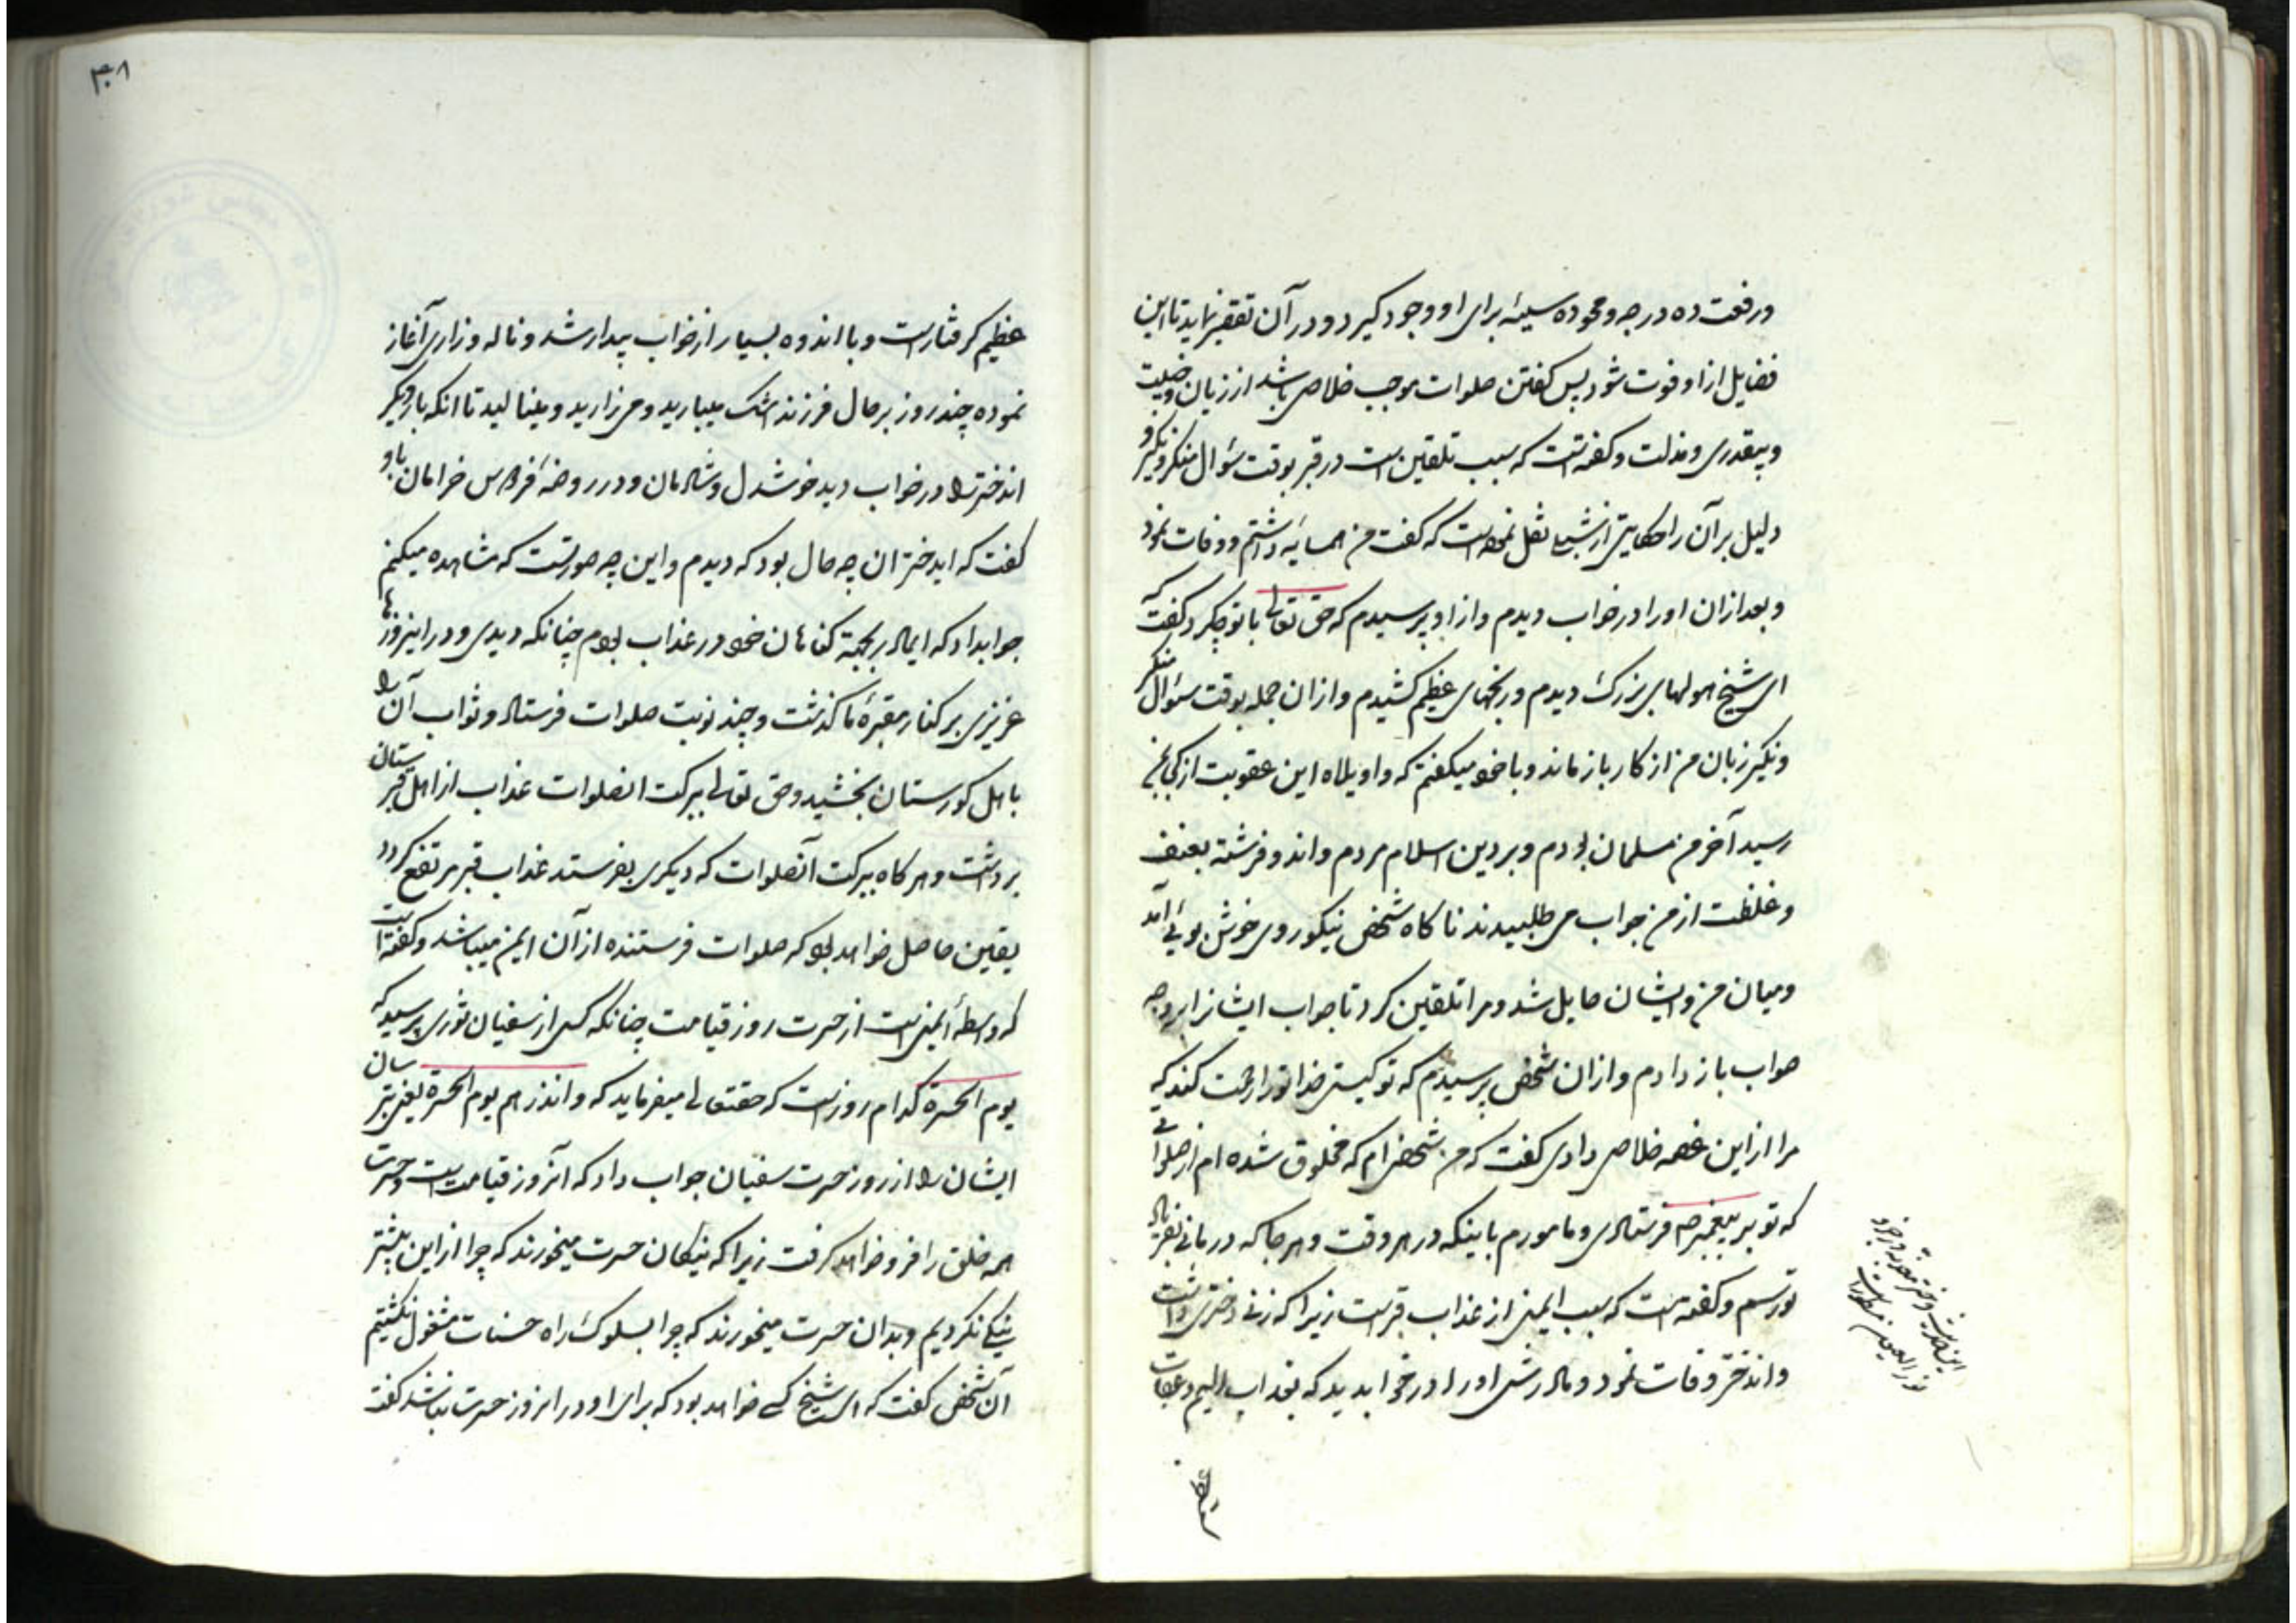 ورفعت ده درجه و محو ده سیئه برای او وجود گیرد و در آن تقصیر نماید تا این
فضایل از او فوت شود پس گفتن صلوات موجب خلاصی باشد از زیان
و بیقدری و مذلت و گفته‌اند که سبب تلقین است در قبر بوقت سؤال منکر و نکیر و
دلیل بر آن را حکایتی از نقل نموده است که گفت من همسایه داشتم و وفات نمود
و بعد از ان او را در خواب دیدم و از او پرسیدم که حق تعالی با تو چکرد گفت که
ای شیخ هولهای بزرک دیدم و رنجهای عظیم کشیدم و از ان جمله بوقت سئوال منکر
و نکیر زبان من از کار باز ماند و با خود میگفتم که واویلاه این عقوبت از کجا بمن
رسید آخر من مسلمان بودم و بر دین اسلام مردم و اندو فرشته بعنف
و غلظت از من جواب می طلبیدند ناگاه شخص نیکوروی خوش بوئی آمد
و میان من و ایشان حایل شد و مرا تلقین کرد تا جواب ایشانرا بر وجه
صواب باز دادم و از ان شخص پرسیدم که تو کیستی خدا تو را رحمت کند که
مرا از این غصه خلاصی دادی گفت که من شخصی‌ام که مخلوق شده ام از صلواتی
که تو بر پیغمبر ص فرستادی و مامورم باینکه در هر وقت و هر جا که در مانی بفریاد
تو رسم و گفته است که سبب ایمنی از عذاب قبر است زیرا که زنی دختری داشت
و اندختر وفات نمود و مادرش او را در خواب دید که بعذاب الیم و عقاب
عظیم
۳۰۸
عظیم گرفتار است و با اندوه بسیار از خواب بیدار شد و ناله و زاری آغاز
نموده چند روز بر حال فرزند اشک میبارید و می زارید و مینالید تا انکه بار دیگر
اندختر را در خواب دید خوشدل و شادمان و در روضه فردوس خرامان باو
گفت که ایدختر ان چه حال بود که دیدم و این چه صورتست که مشاهده میکنم
جوابداد که ایمادر بجهة گناهان خود در عذاب بودم چنانکه دیدی و در اینروزها
عزیزی بر کنار مقبرهٔ ما گذشت و چند نوبت صلوات فرستاد و ثواب آن را
باهل گورستان بخشید و حق تعالی ببرکت انصلوات عذاب از اهل قبرستان
برداشت و هر گاه ببرکت آنصلوات که دیگری بفرستد عذاب قبر مرتفع گردد
یقین حاصل خواهد بود که صلوات فرستنده از آن ایمن میباشد و گفته است
که واسطهٔ ایمنی است از حسرت روز قیامت چنانکه کسی از سفیان ثوری پرسید که
یوم الحسرة کدام روز است که حقتعالی میفرماید که و انذرهم یوم الحسرة یعنی بترسان
ایشان را از روز حسرت سفیان جواب داد که آنروز قیامت است و حسرت
همه خلق را فرو خواهد گرفت زیرا که نیکان حسرت میخورند که چرا از این بیشتر
نیکی نکردیم و بدان حسرت میخورند که چرا بسلوک راه حسنات مشغول نگشتیم
آن شخص گفت که ای شیخ کسی خواهد بود که برای او در انروز حسرت نباشد گفت